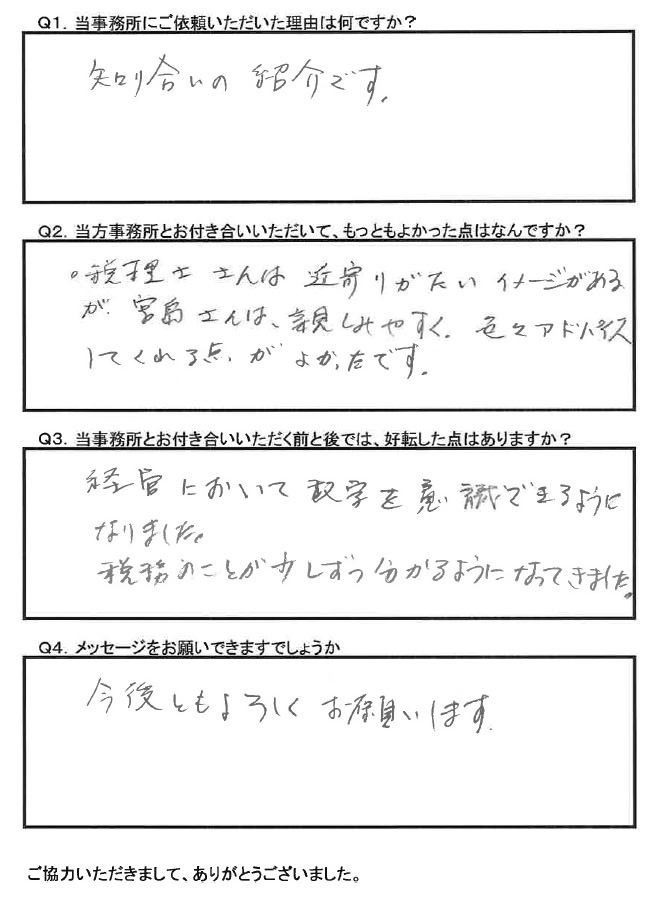 Q1. 当事務所にご依頼いただいた理由は何ですか？
知り合いの 紹介です。
Q2. 当方事務所とお付き合いいただいて、もっともよかった点はなんですか？
。税理士さんは 近寄りがたい イメージがある
が 宮島さんは、親しみやすく、色々アドバイス
してくれる点 が よかったです。
Q3. 当事務所とお付き合いいただく前と後では、好転した点はありますか？
経営において 数字を意識できるように
なりました。
税務のことが少しずつ分かるようになってきました。
Q4. メッセージをお願いできますでしょうか
今後ともよろしく お願いします。
ご協力いただきまして、ありがとうございました。